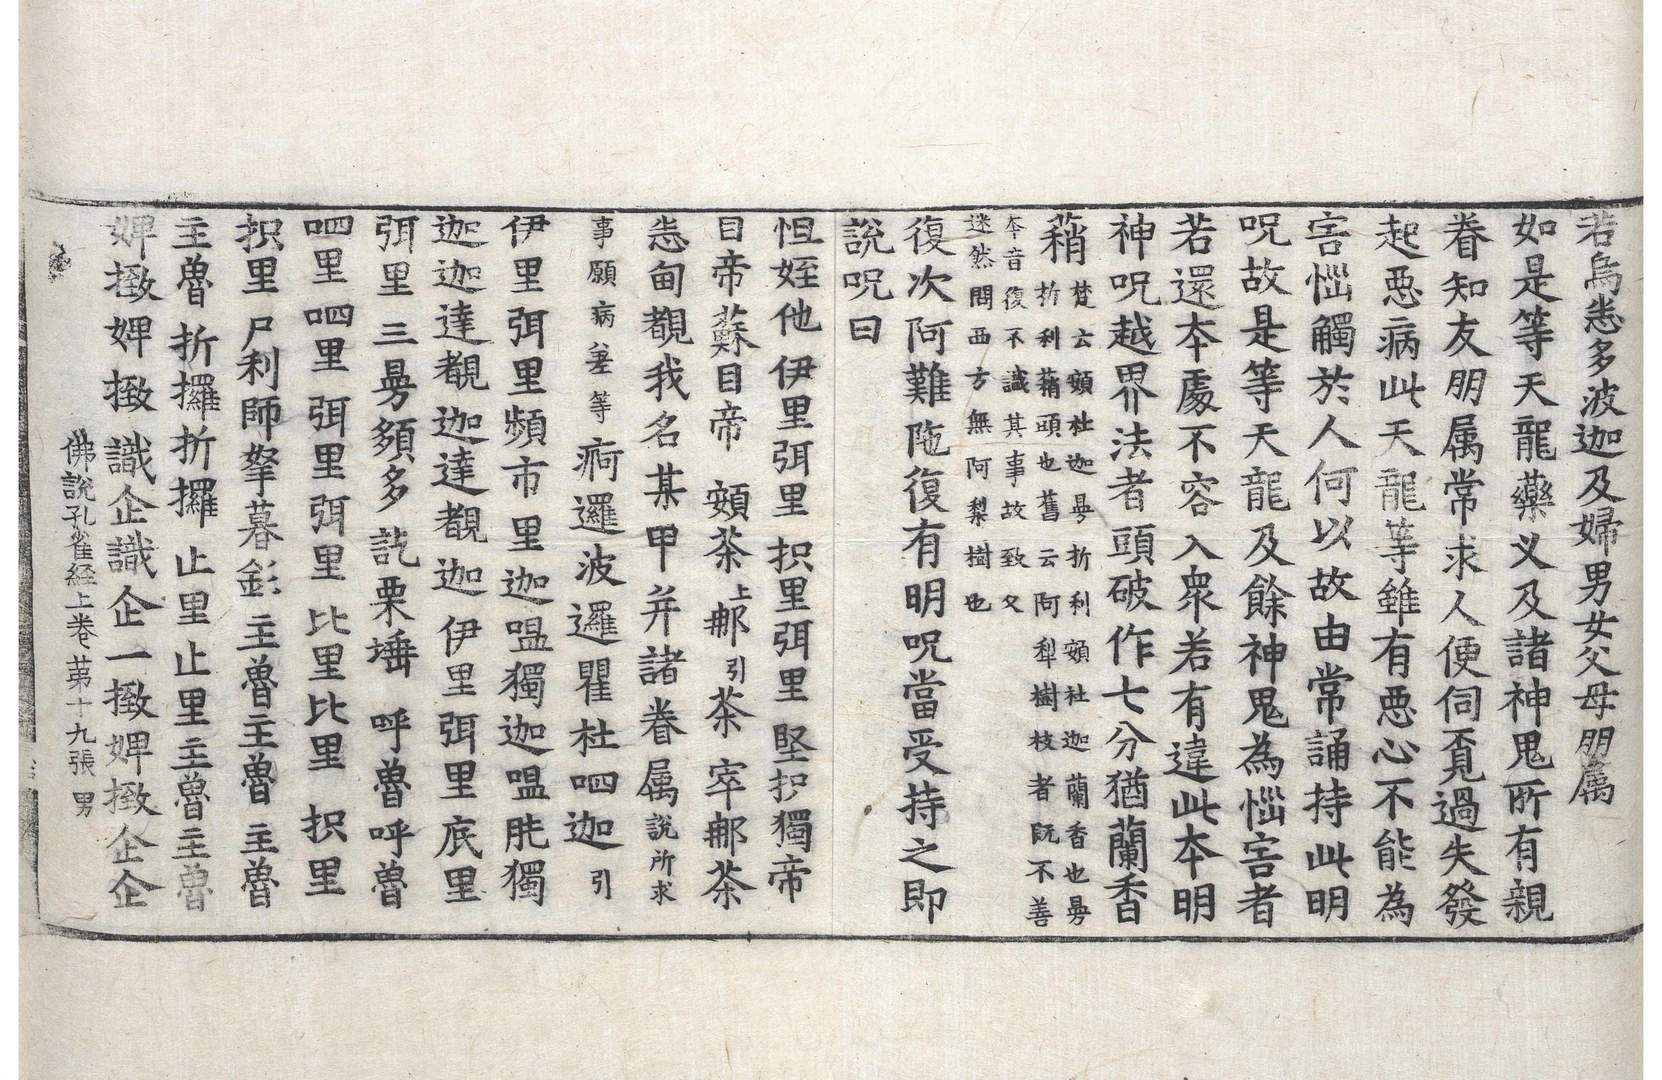 若烏悊多波迦及婦男女父母朋属
如是等天龍藥义及諸神鬼所有親
眷知友朋属常求人便伺覓過失發
起惡病此天龍等雖有惡心不能為
害惱觸於人何以故由常誦持此明
呪故是等天龍及餘神鬼為惱害者
若還本處不容入衆若有違此本明
神呪越界法者頭破作七分猶蘭香
蘔 梵云頞杜迦曼折利頞杜迦蘭香也曼
折利蘔頭也舊云阿犁樹枝者既不善
本音復不識其事故致久
迷然問西方無阿梨樹也
復次阿難陁復有明呪當受持之即
說呪曰
怛姪他 伊里弭里 抧里弭里 堅抧獨帝
目帝蘇目帝 頞茶上 郍引 茶 窣郍茶
悊甸覩我名某甲并諸眷属 說所求
事願病差等 痾邏波邏瞿杜呬迦引
伊里弭里頻市里迦嗢獨迦嗢肫獨
迦迦達覩迦達覩迦伊里弭里底里
弭里 三曼頞多 訖栗埵 呼魯呼魯
呬里呬里弭里弭里比里比里 抧里
抧里尸利師拏暮釤 主魯主魯 主魯
主魯 折攞折攞 止里止里主魯主魯
婢撽婢撽 識企識企一撽婢撽企企
佛說孔雀経上巻 苐十九張 男